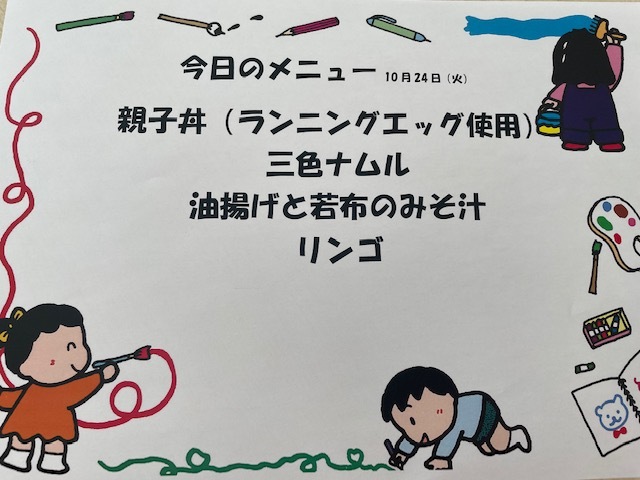 今日のメニュー 10月24日(火)
親子丼(ランニングエッグ使用)
三色ナムル
油揚げと若布のみそ汁
リンゴ